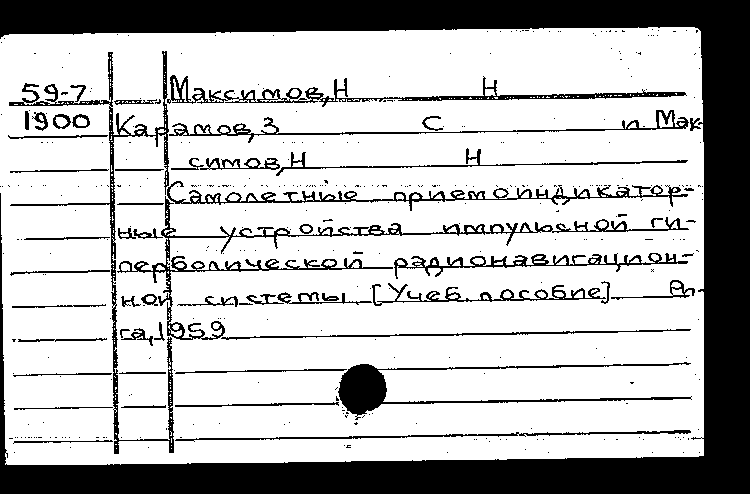 59-7 Максимов, Н Н
1900 Карамов, З С и Мак-
симов, Н Н
Самолетные приемоиндикатор-
ные устройства импульсной ги-
перболической радионавигацион-
ной системы [Учеб. пособие] Ри-
га, 1959